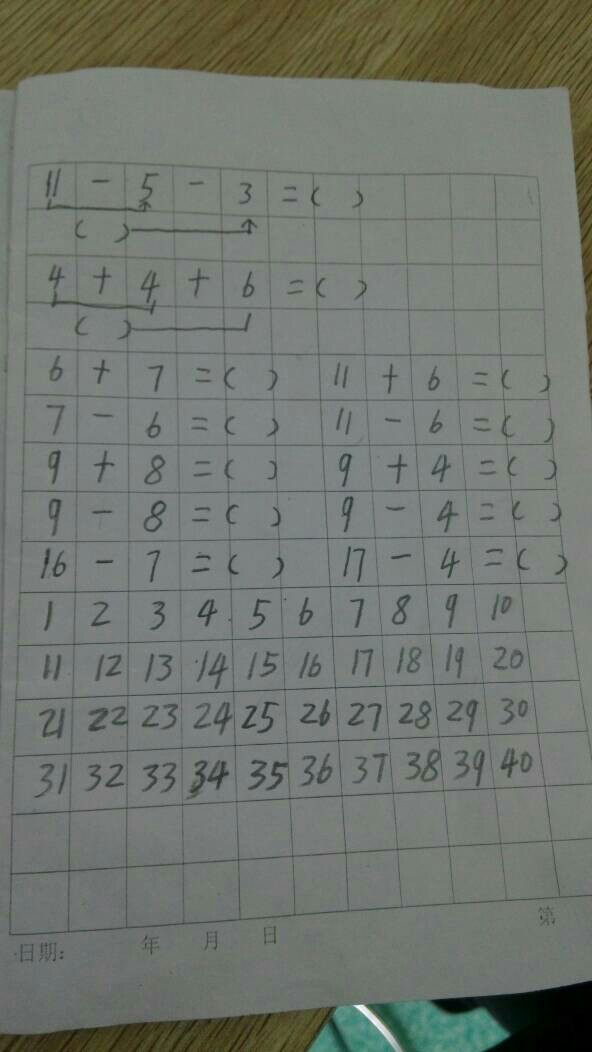 11 - 5 - 3 = ( )
( )
4 + 4 + 6 = ( )
( )
6 + 7 = ( ) 11 + 6 = ( )
7 - 6 = ( ) 11 - 6 = ( )
9 + 8 = ( ) 9 + 4 = ( )
9 - 8 = ( ) 9 - 4 = ( )
16 - 7 = ( ) 17 - 4 = ( )
1 2 3 4 5 6 7 8 9 10
11 12 13 14 15 16 17 18 19 20
21 22 23 24 25 26 27 28 29 30
31 32 33 34 35 36 37 38 39 40
日期: 年 月 日 第